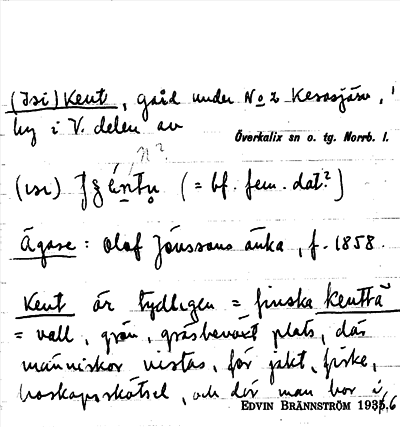 (Isi) Kent, gård under No 2 Kesasjärv,
by i V. delen av
Överkalix sn o. tg. Norrb. l.
n?
(isi) (= bf. fem. dat?)
Ägare: Olof Jönssons änka, f. 1858.
Kent är tydligen = finska kenttä
= vall, grön, gräsbeväxt plats, där
människor vistas, för jakt, fiske,
boskapsskötsel, och där man bor i
EDVIN BRÄNNSTRÖM 1935,6